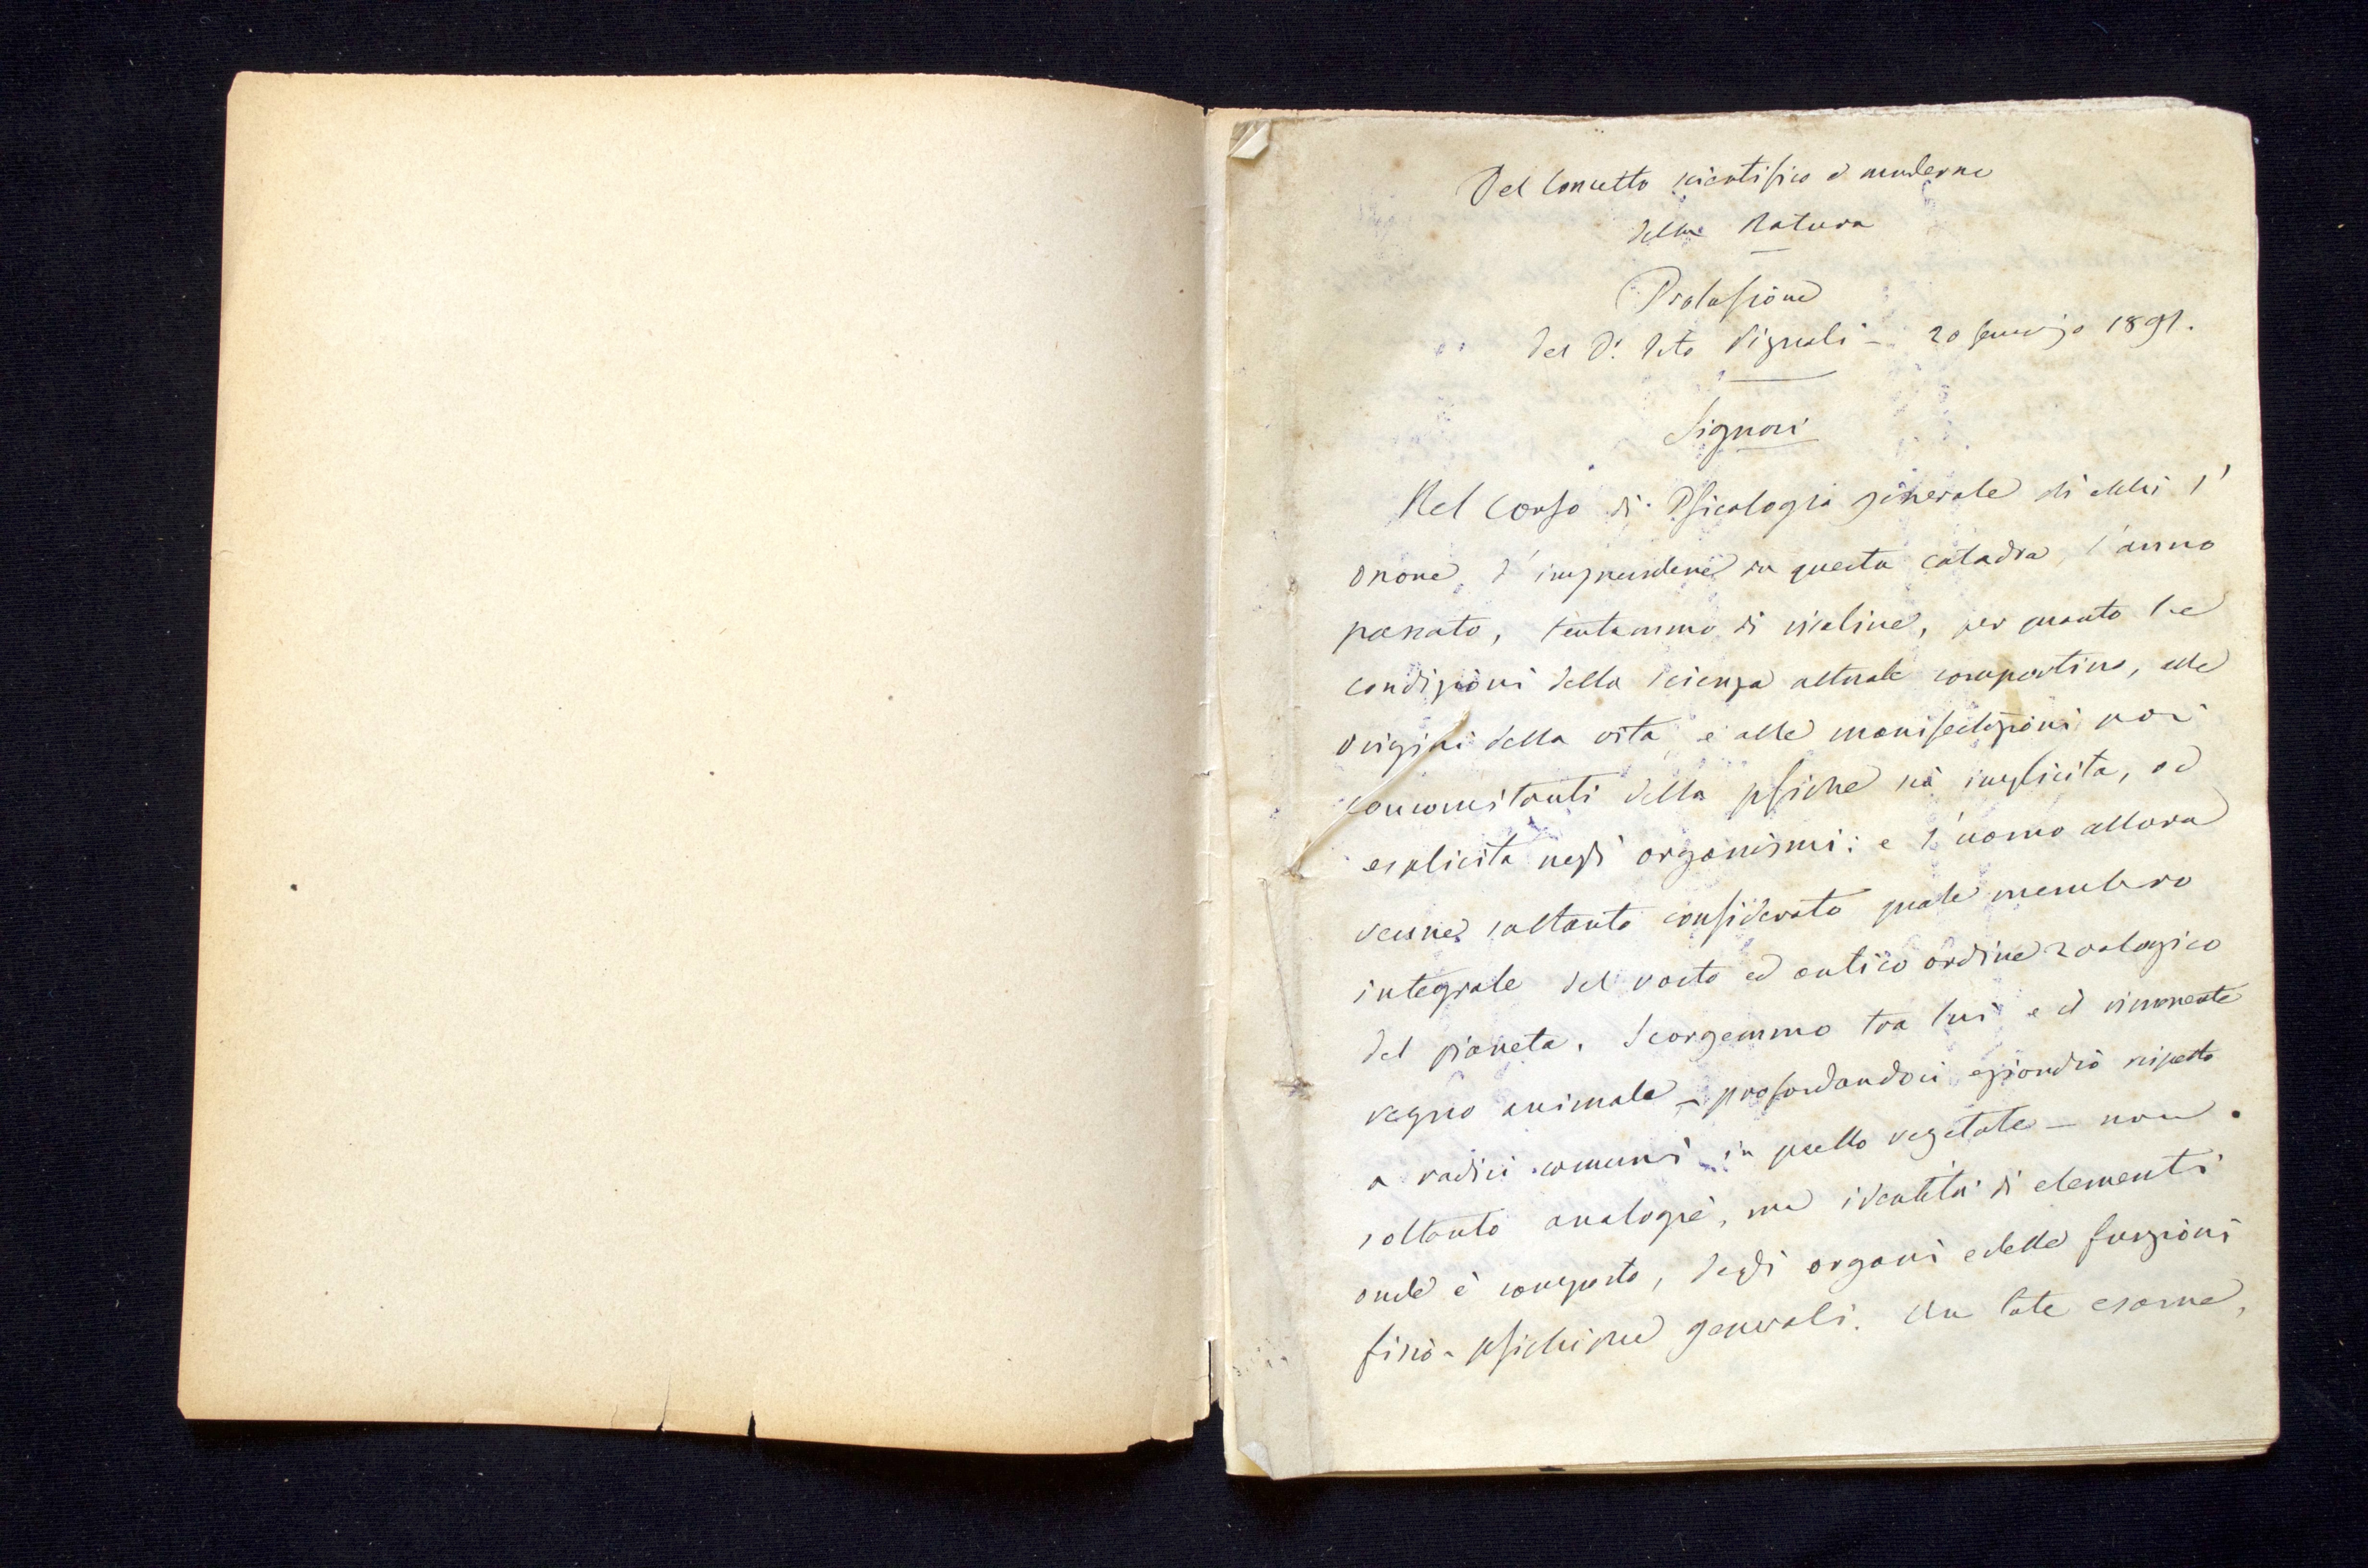 Del Concetto scientifico e moderno
della Natura
Prolusione
del Dr. Tito Vignoli – 20 Gennajo 1891.
Signori
Nel Corso di Psicologia generale ch'ebbi l'
onore d'imprendere su questa catedra, l'anno
passato, tentammo di risalire, per quanto le
condizioni della scienza attuale comportino, alle
origini della vita e alle manifestazioni poi
concomitanti della psiche sia implicita, od
esplicita negli organismi: e l'uomo allora
venne soltanto considerato quale membro
integrale del vasto ed antico ordine zoologico
del pianeta. Scorgemmo tra lui e il rimanente
regno animale – profondandoci eziandio rispetto
a radici comuni in quello vegetale – non
soltanto analogie, ma identità di elementi
onde è composto, degli organi e delle funzioni
fisio-psichiche generali. Un tale esame,